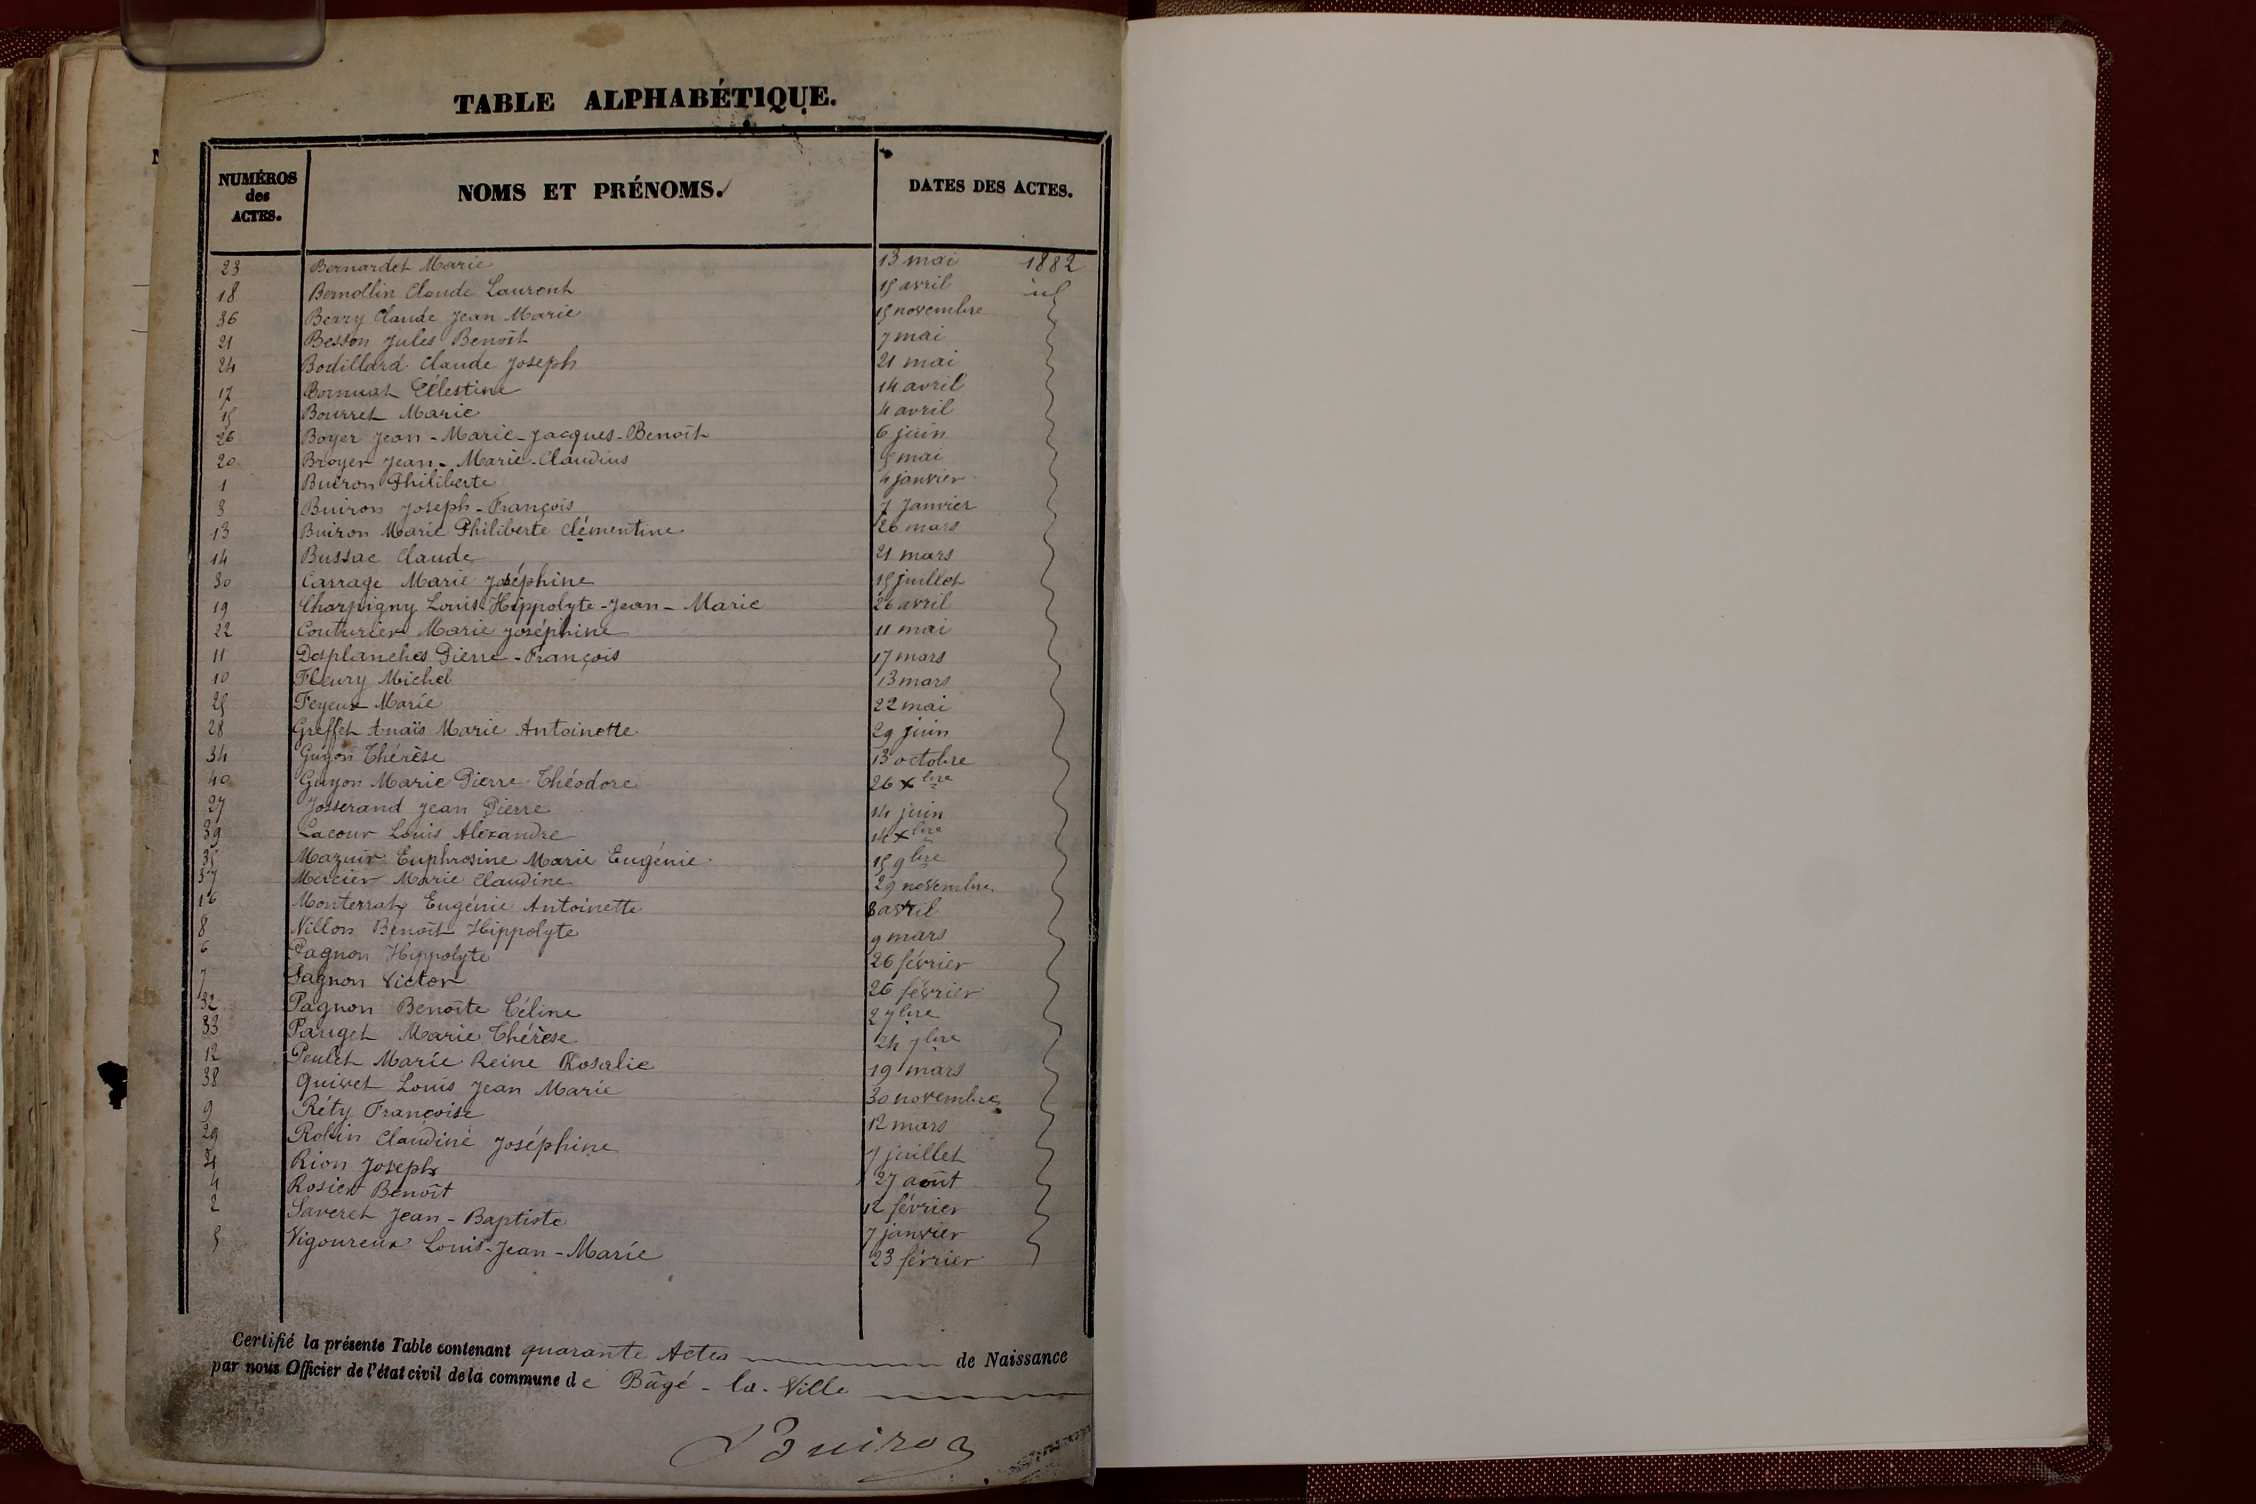 TABLE ALPHABÉTIQUE.
NUMÉROS des ACTES. NOMS ET PRÉNOMS. DATES DES ACTES.
23 Bernardet Marie 13 mai 1882
18 Bernollin Claude Laurent 15 avril id
36 Berry Claude Jean Marie 15 novembre
21 Besson Jules Benoît 7 mai
24 Bodillard Claude Joseph 21 mai
17 Célestine 14 avril
15 Bourret Marie 4 avril
26 Boyer Jean-Marie-Jacques-Benoît 6 juin
20 Broyer Jean-Marie-Claudius 5 mai
1 Buiron Philiberte 4 janvier
3 Buiron Joseph-François 7 Janvier
13 Buiron Marie Philiberte Clémentine 26 mars
14 Bussac Claude 21 mars
30 Carrage Marie Joséphine 15 juillet
19 Charpigny Louis Hippolyte-Jean-Marie 26 avril
22 Couturier Marie Joséphine 11 mai
11 Desplanches Pierre-François 17 mars
10 Fleury Michel 13 mars
25 Feyeux Marie 22 mai
28 Greffet Anaïs Marie Antoinette 29 juin
34 Guyon Thérèse 13 octobre
40 Guyon Marie Pierre Théodore 26 Xbre
27 Josserand Jean Pierre 14 juin
39 Lacour Louis Alexandre 14 Xbre
35 Mazuir Euphrosine Marie Eugénie 15 9bre
37 Mercier Marie Claudine 29 novembre
16 Monterrat Eugénie Antoinette 8 avril
8 Nillon Benoît Hippolyte 9 mars
6 Pagnon Hippolyte 26 février
7 Pagnon Victor 26 février
32 Pagnon Benoîte Céline 2 7bre
33 Pauget Marie Thérèse 24 7bre
12 Peulet Marie Reine Rosalie 19 mars
38 Quivet Louis Jean Marie 30 novembre
9 Réty Françoise 12 mars
29 Robin Claudine Joséphine 7 juillet
31 Rion Joseph 27 août
4 Rosier Benoît 12 février
2 Saveret Jean-Baptiste 7 janvier
5 Vigoureux Louis-Jean-Marie 23 février
Certifié la présente Table contenant quarante Actes de Naissance
par nous Officier de l'état civil de la commune de Bâgé-la-Ville
Buiron